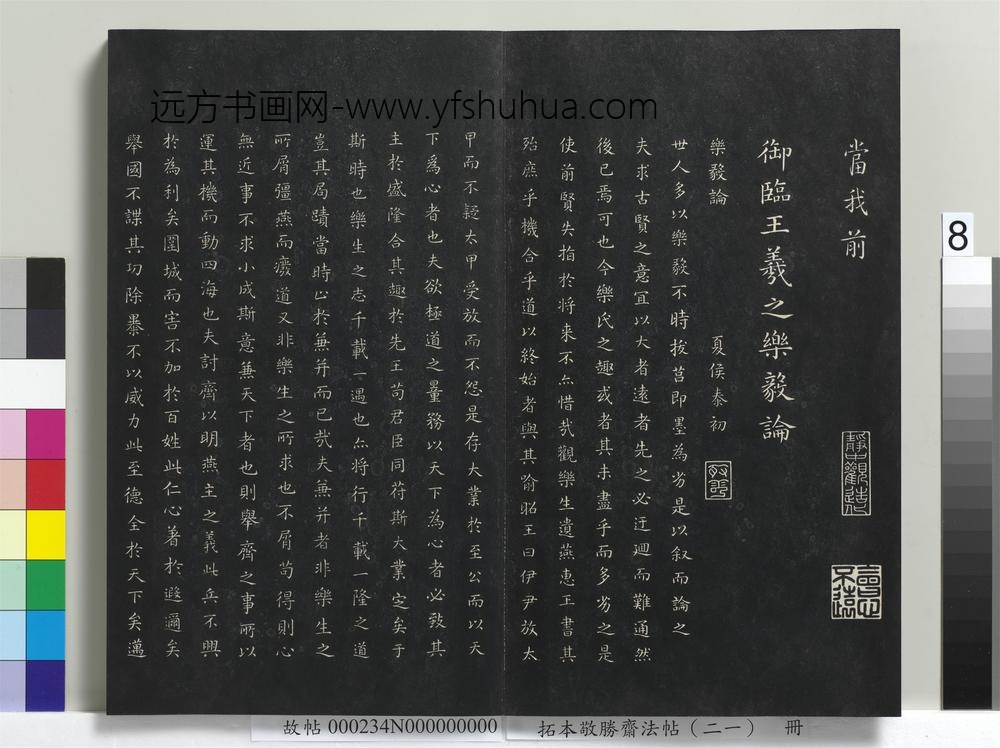 當我前
靜中觀造化
御臨王羲之樂毅論
樂毅論 夏侯泰初
世人多以樂毅不時拔莒即墨為劣是以叙而論之
夫求古賢之意宜以大者遠者先之必迂廻而難通然
後已焉可也今樂氏之趣或者其未盡乎而多劣之是
使前賢失指於將来不亦惜哉觀樂生遺燕惠王書其
殆庶乎機合乎道以終始者與其喻昭王曰伊尹放太
甲而不疑太甲受放而不怨是存大業於至公而以天
下為心者也夫欲極道之量務以天下為心者必致其
主於盛隆合其趣於先王苟君臣同符斯大業定矣于
斯時也樂生之志千載一遇也亦將行千載一隆之道
豈其局蹟當時止於兼并而已哉夫兼并者非樂生之
所屑彊燕而廢道又非樂生之所求也不屑苟得則心
無近事不求小成斯意兼天下者也則舉齊之事所以
運其機而動四海也夫討齊以明燕主之義此兵不興
於為利矣圍城而害不加於百姓此仁心著於遐邇矣
舉國不謀其功除暴不以威力此至德全於天下矣邁
远方书画网-www.yfshuhua.com
8
故帖 000234N000000000 拓本敬勝齋法帖（二一） 冊